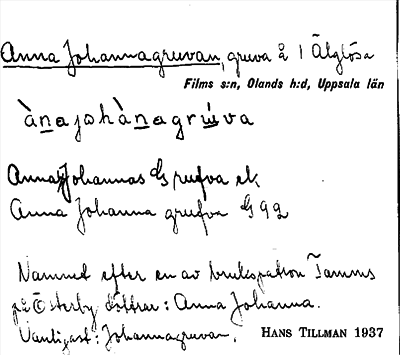 Anna Johannagruvan, gruva å 1 Älglösa
Films s:n, Olands h:d, Uppsala län
ànajohànagrúva
Anna Johannas Grufva ek
Anna Johanna grufva G 92
Namnet efter en av brukspatron Tamms
på Österby döttrar: Anna Johanna.
Vanligast: Johannagruvan.
HANS TILLMAN 1937